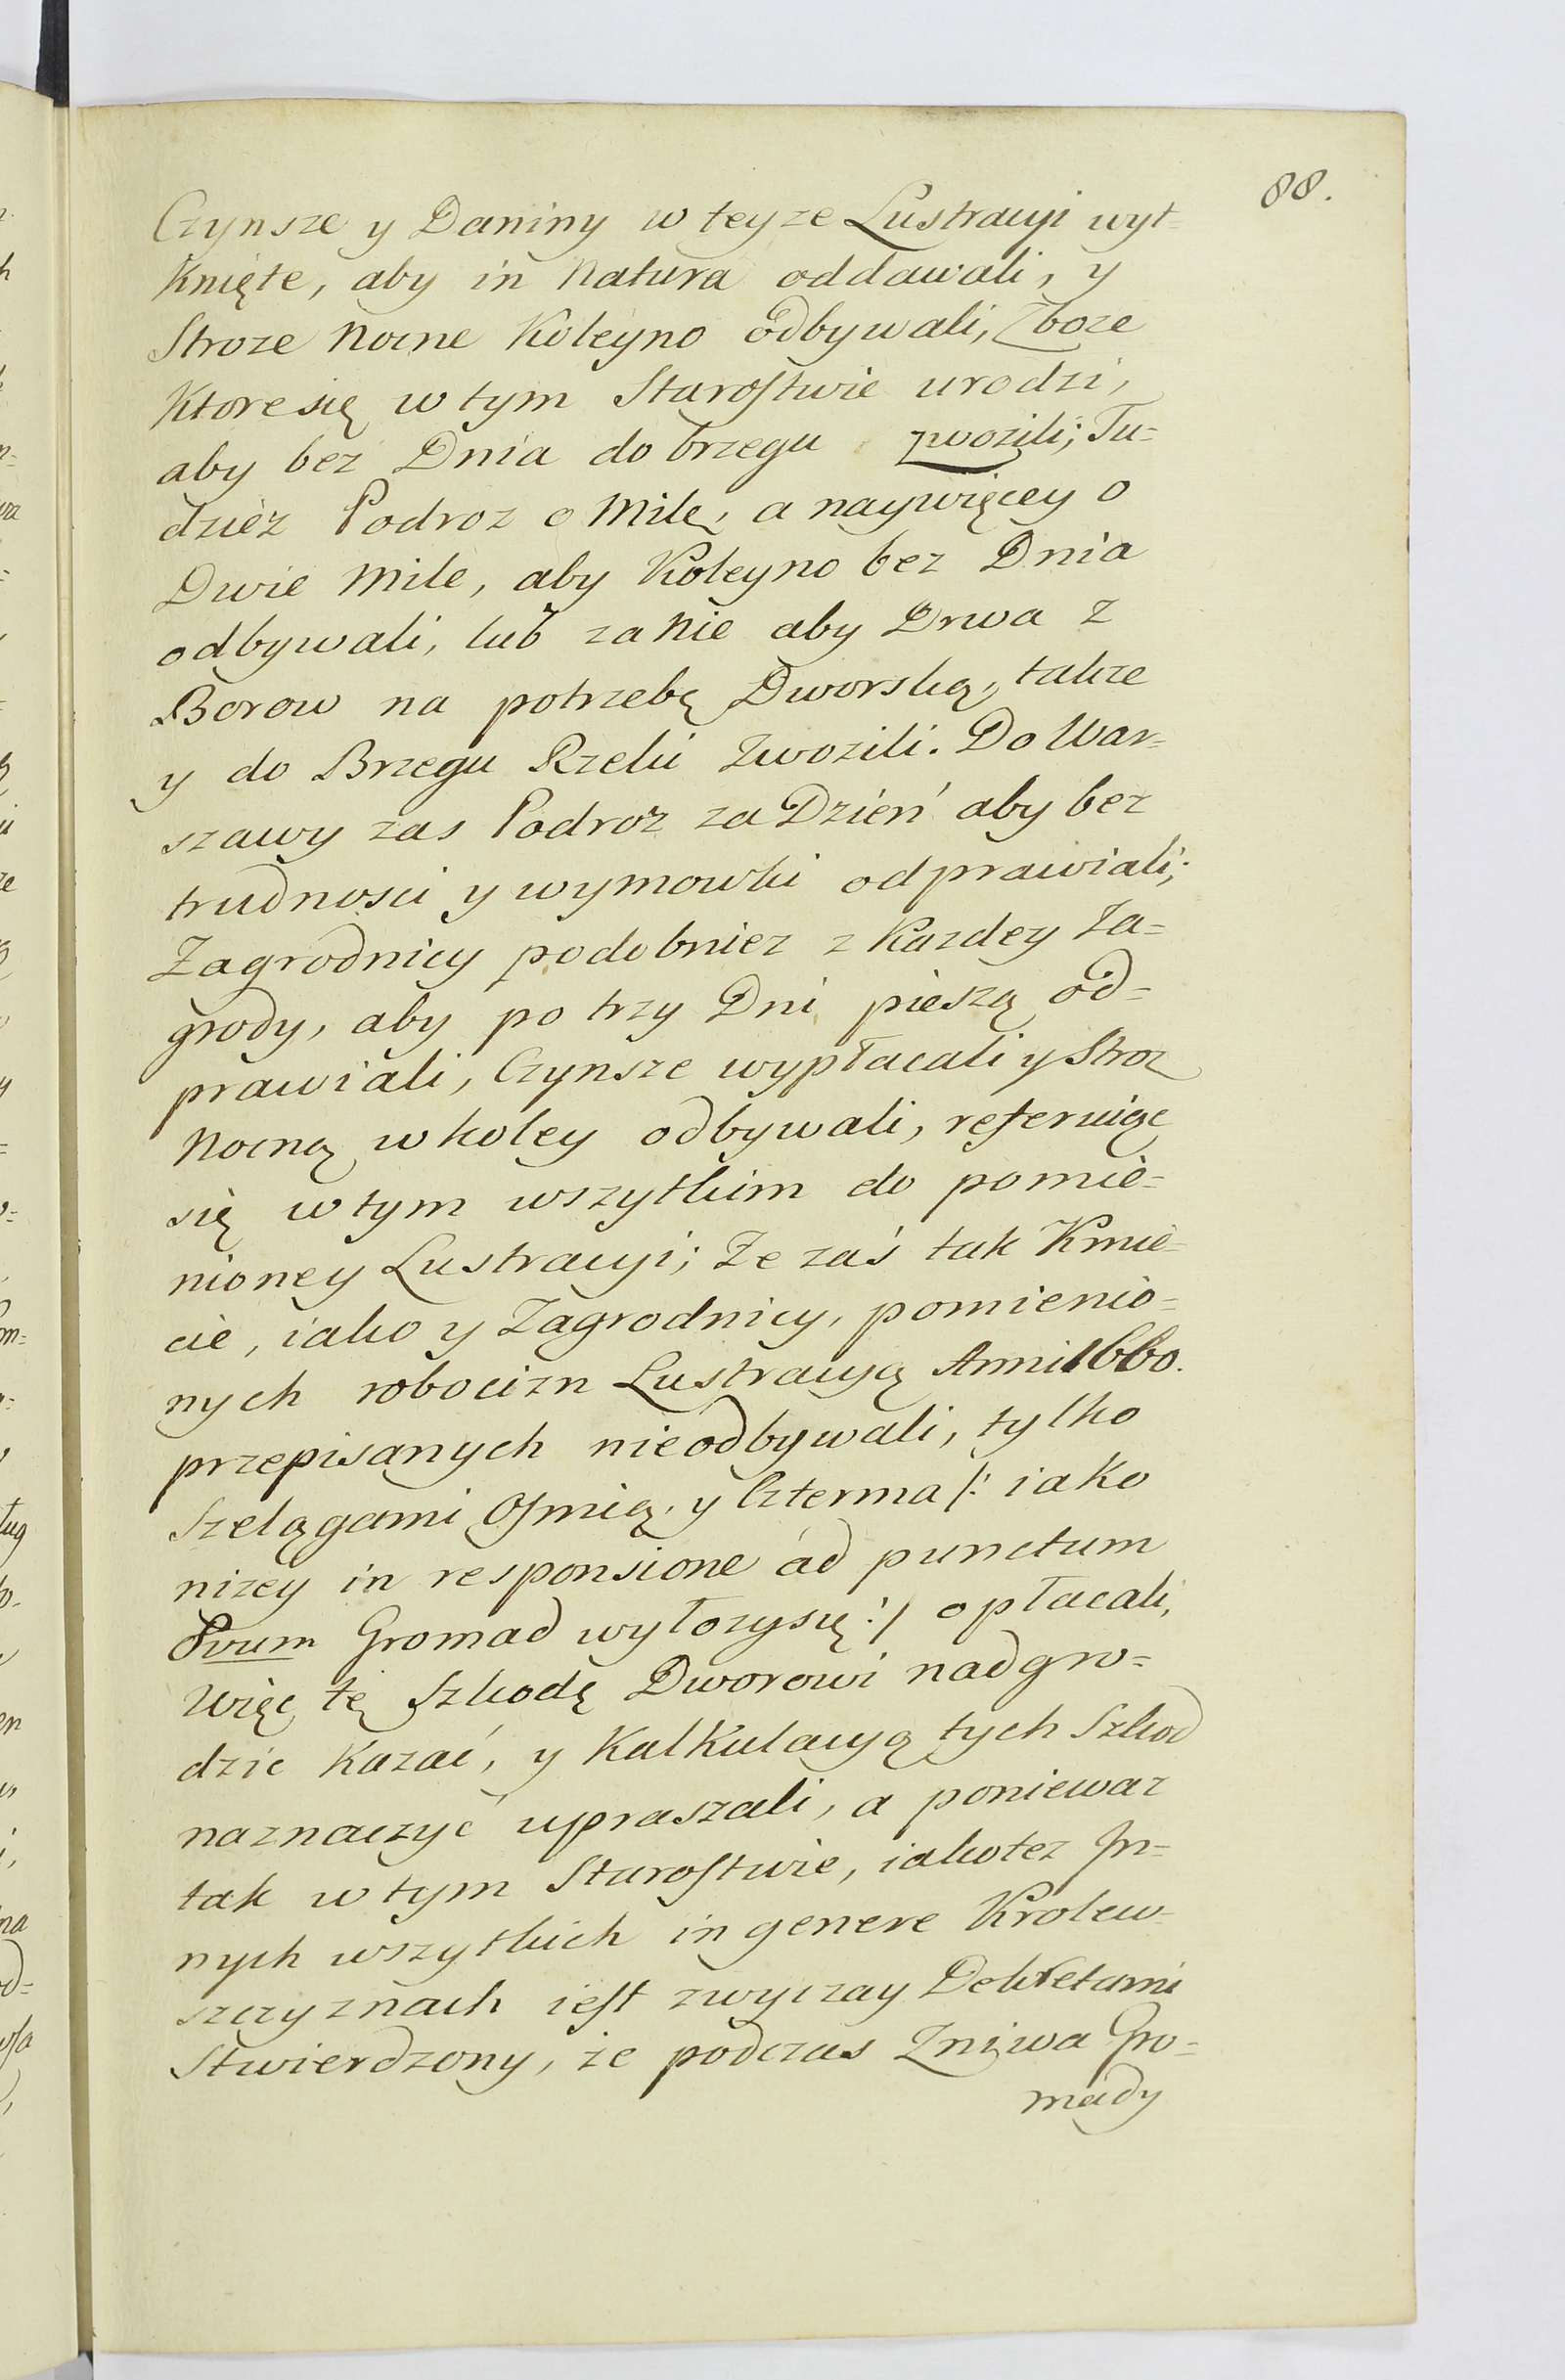 88.
Czynsze y Daniny w teyze Lustracyi wyt-
knięte, aby in Natura oddawali, y
Stroze Nocne Koleyno odbywali, Zboze
Ktore się w tym Starostwie urodzi,
aby bez Dnia do brzegu zwozili; Tu=
dziez Podroz o Milę, a naywięcey o
Dwie Mile, aby Koleyno bez Dnia
odbywali, lub za Nie aby Drwa z
Borow na potrzebę Dworską, takze
y do Brzegu Rzeki Zwozili. Do War=
szawy zas Podroz za Dzień aby bez
trudnosci y wymowki odprawiali;
Zagrodnicy podobniez z Kazdey Za=
grody, aby po trzy Dni pieszą od=
prawiali, Czynsze wypłacali y Stroz
Nocną w koley odbywali, referuiąc
się w tym wszytkim do pomie=
nioney Lustracyi; Ze zaś tak Kmie=
cie, iako y Zagrodnicy, pomienio=
nych robocizn Lustracyą Anni 1660.
przepisanych nieodbywali, tylko
Szelągami Osmią, y Czterma /: iako
nizey in responsione ad punctum
8vum Gromad wyłozy się :/ opłacali,
Więc tę Szkodę Dworowi nadgro=
dzic Kazać, y Kalkulacyą tych Szkod
naznaczyć upraszali, a poniewaz
tak w tym Starostwie, iakotez In=
nych wszytkich in genere Krolew=
szczyznach iest zwyczay Dekretami
Stwierdzony, że podczas Zniwa Gro=
mady